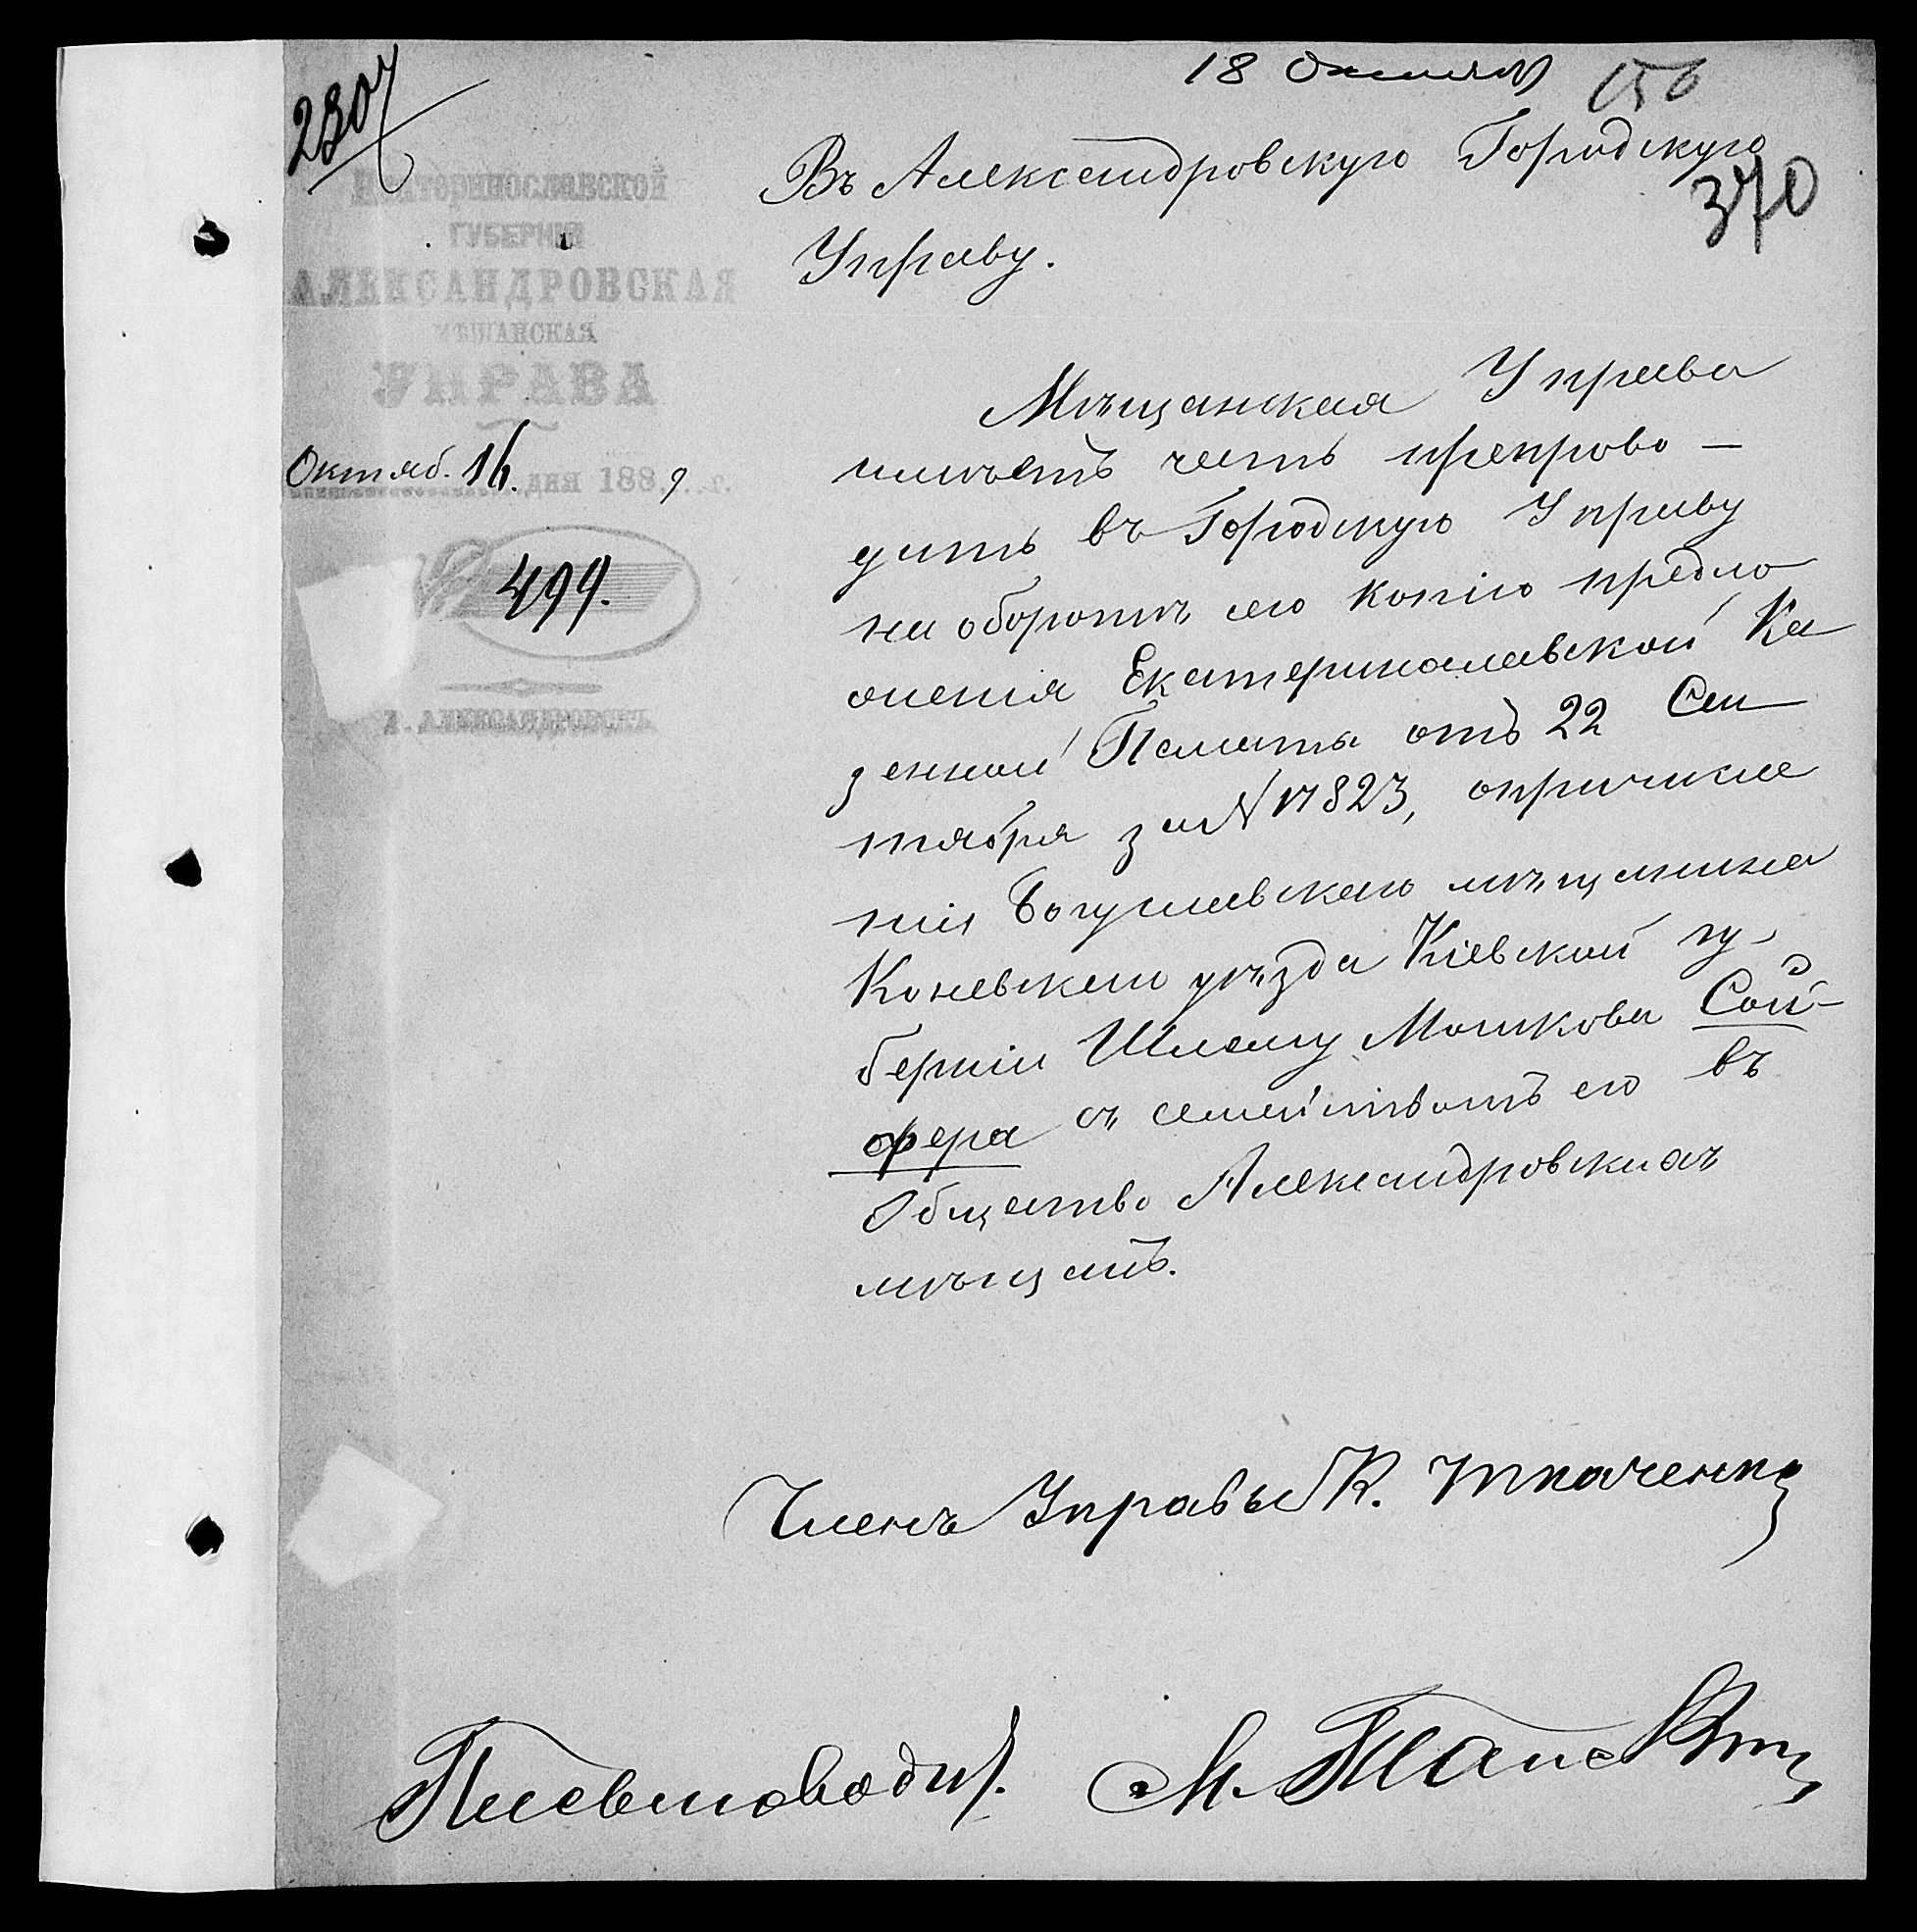 2307
18 Октября
156
370
Въ Александровскую Городскую
Управу.
Екатеринославской
ГУБЕРНІИ
АЛЕКСАНДРОВСКАЯ
МѢЩАНСКАЯ
УПРАВА
Октяб. 16. дня 1889 г.
499.
Г. АЛЕКСАНДРОВСКЪ
Мѣщанская Управа
имѣетъ честь препрово-
дить въ Городскую Управу
на оборотѣ сего копію предло
женія Екатеринославской Ка
зенной Палаты отъ 22 Сен
тября за N 17823, опричисле
ніи Богуславскаго мѣщанина
Коневскаго уѣзда Кіевской гу-
берніи Шлему Мошкова Сой-
фера съ семействомъ его въ
Общество Александровскихъ
мѣщанъ.
Членъ Управы К. Ткаченко
Письмоводит.